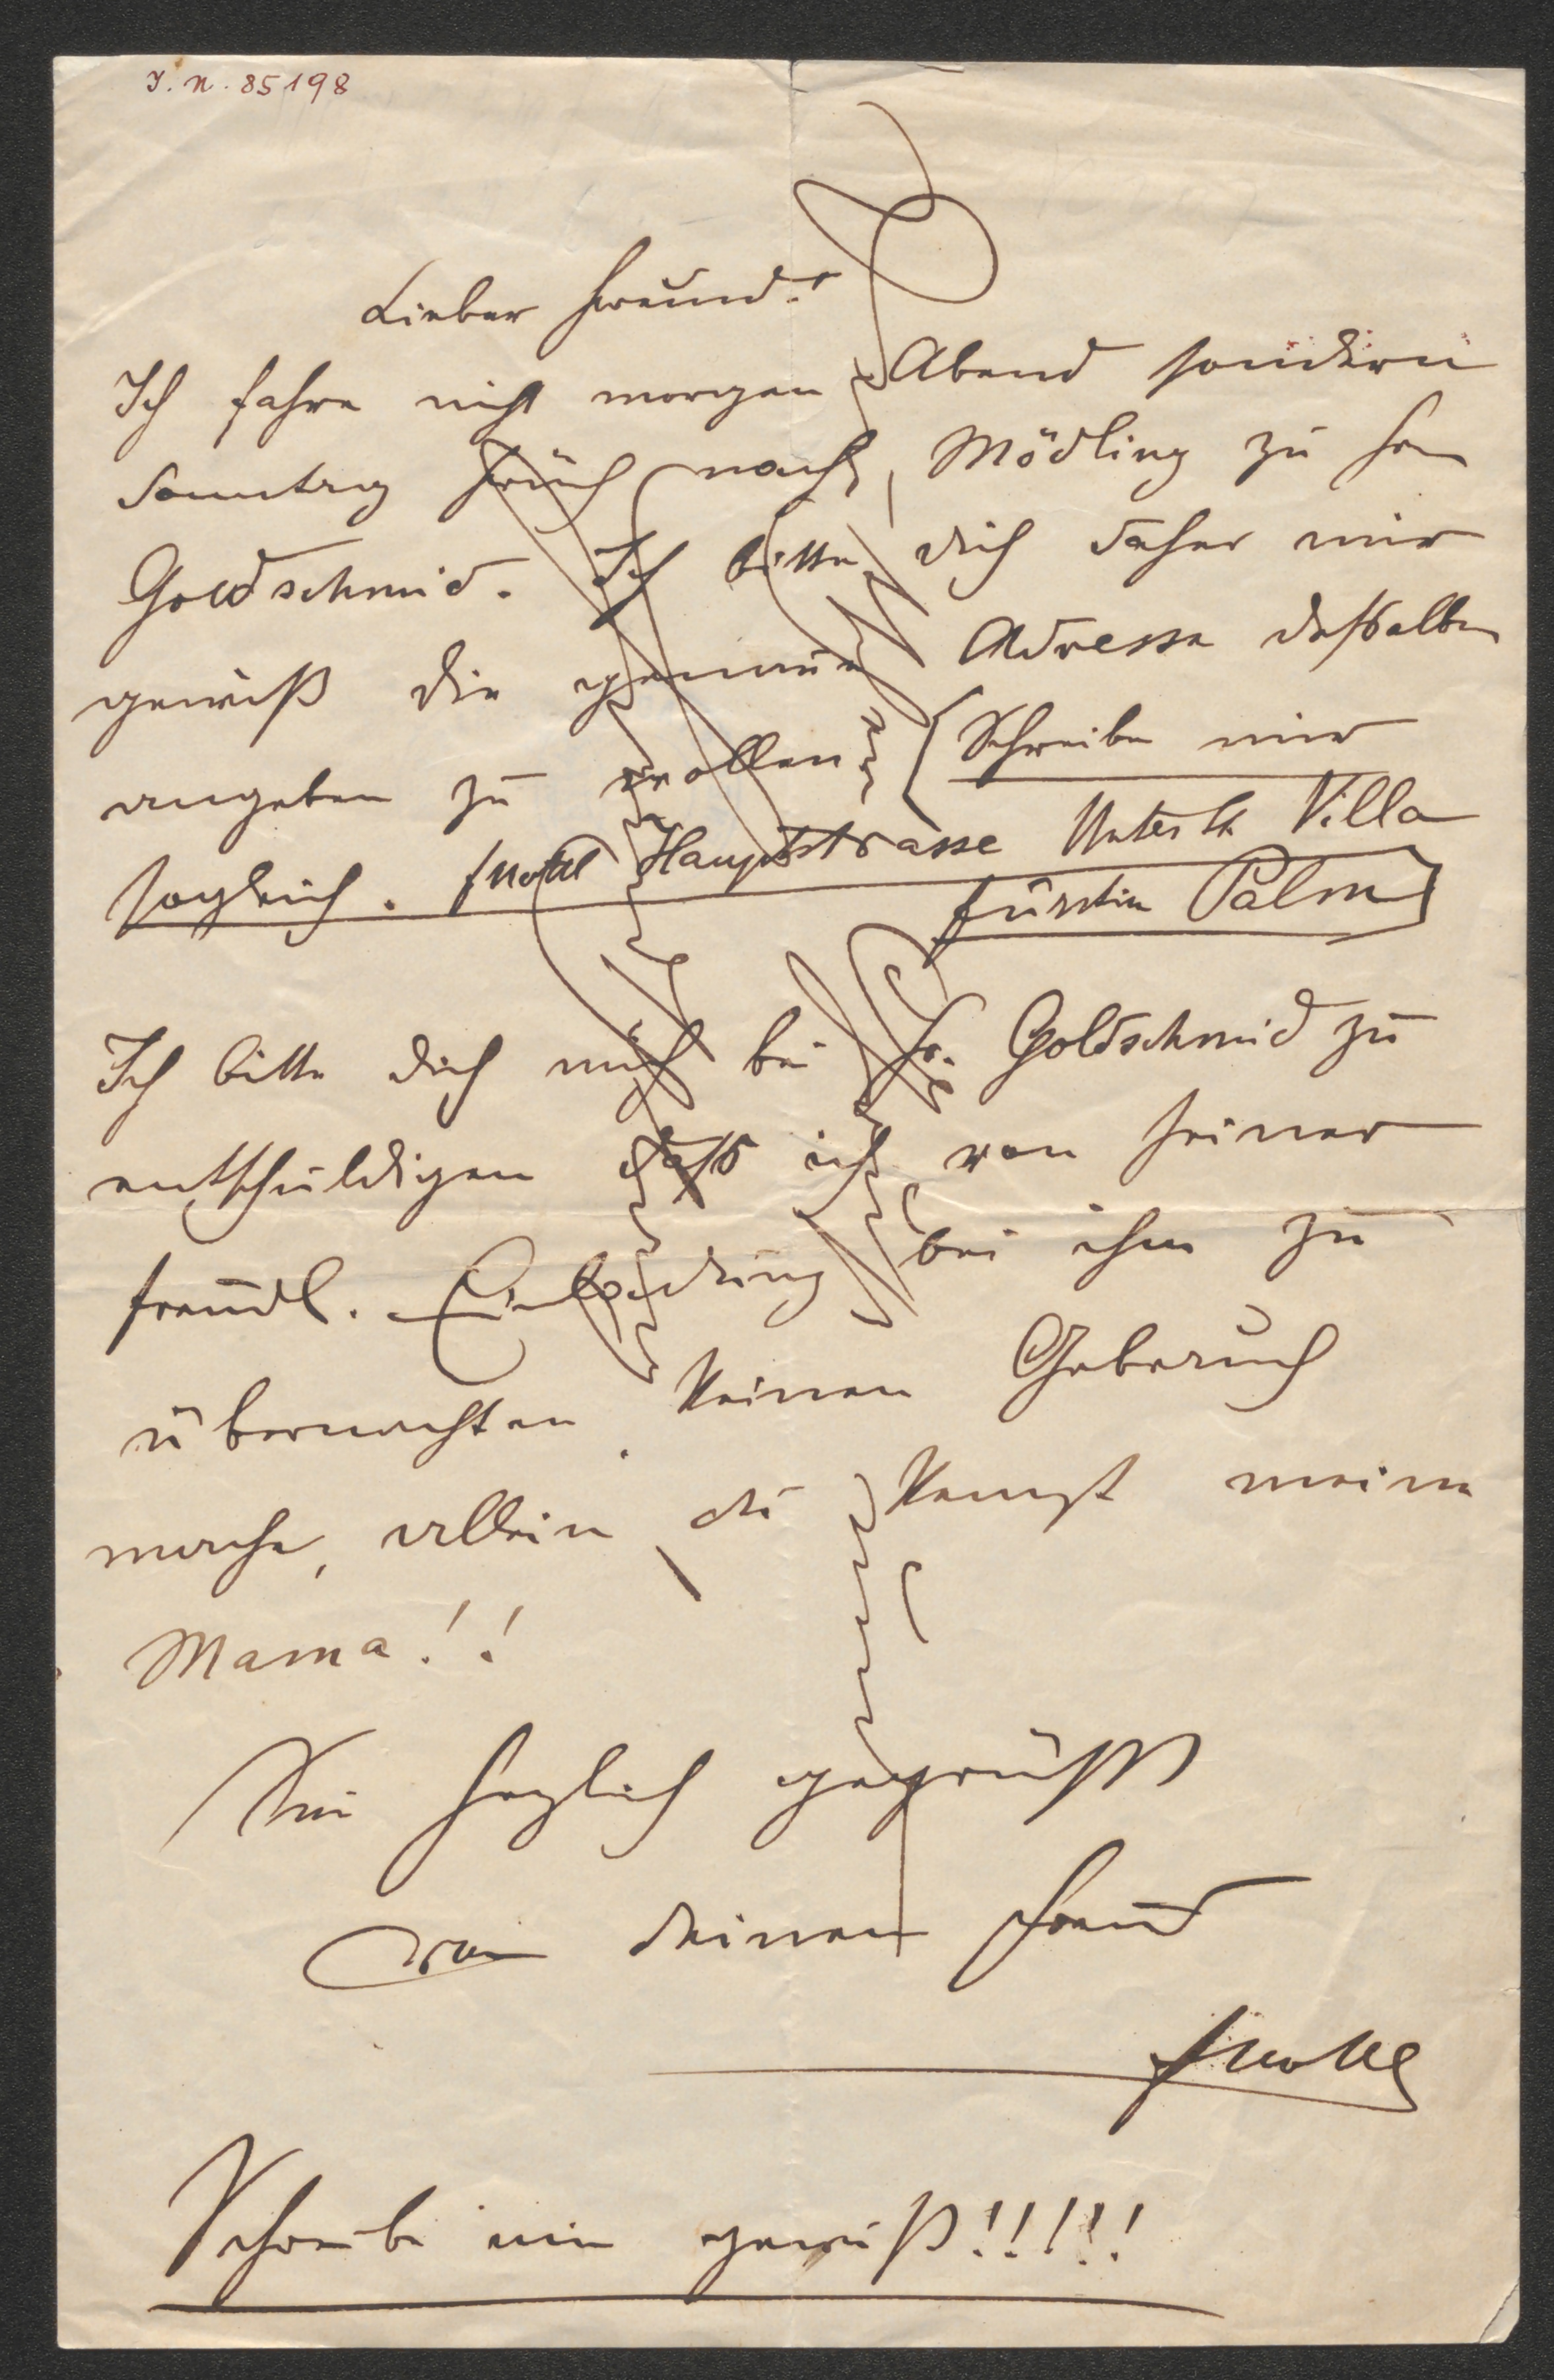 I. N. 85198
Lieber Freund!
Ich fahre nicht morgen Abend sondern
Sonntag früh nach Mödling zu Hrn
Goldschmid. Ich bitte dich daher mir
gewiß die genaue Adresse desselben
angeben zu wollen (Schreibe mir
sogleich. Hauptstrasse Villa
Fürstin Palm)
Ich bitte dich mich bei Hr. Goldschmid zu
entschuldigen dass ich von seiner
freundl. Einladung bei ihm zu
übernachten keinen Gebrauch
mache, allein du kennst meine
Mama!!
Sei herzlich gegrüßt
von deinem Freund
Mottl
Schreibe mir gewiß!!!!!